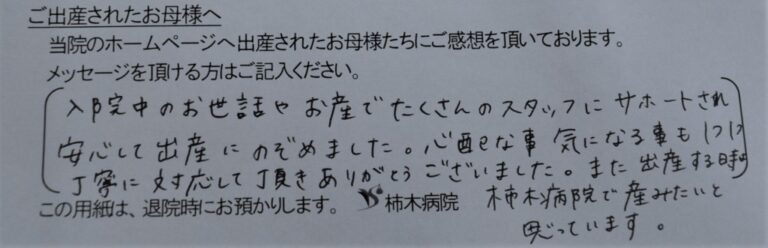 ご出産されたお母様へ
当院のホームページへ出産されたお母様たちにご感想を頂いております。
メッセージを頂ける方はご記入ください。
入院中のお世話やお産でたくさんのスタッフにサポートされ
安心して出産にのぞめました。心配な事 気になる事も1つ1つ
丁寧に対応して頂きありがとうございました。また出産する時は
柿木病院で産みたいと
思っています。
この用紙は、退院時にお預かりします。 柿木病院